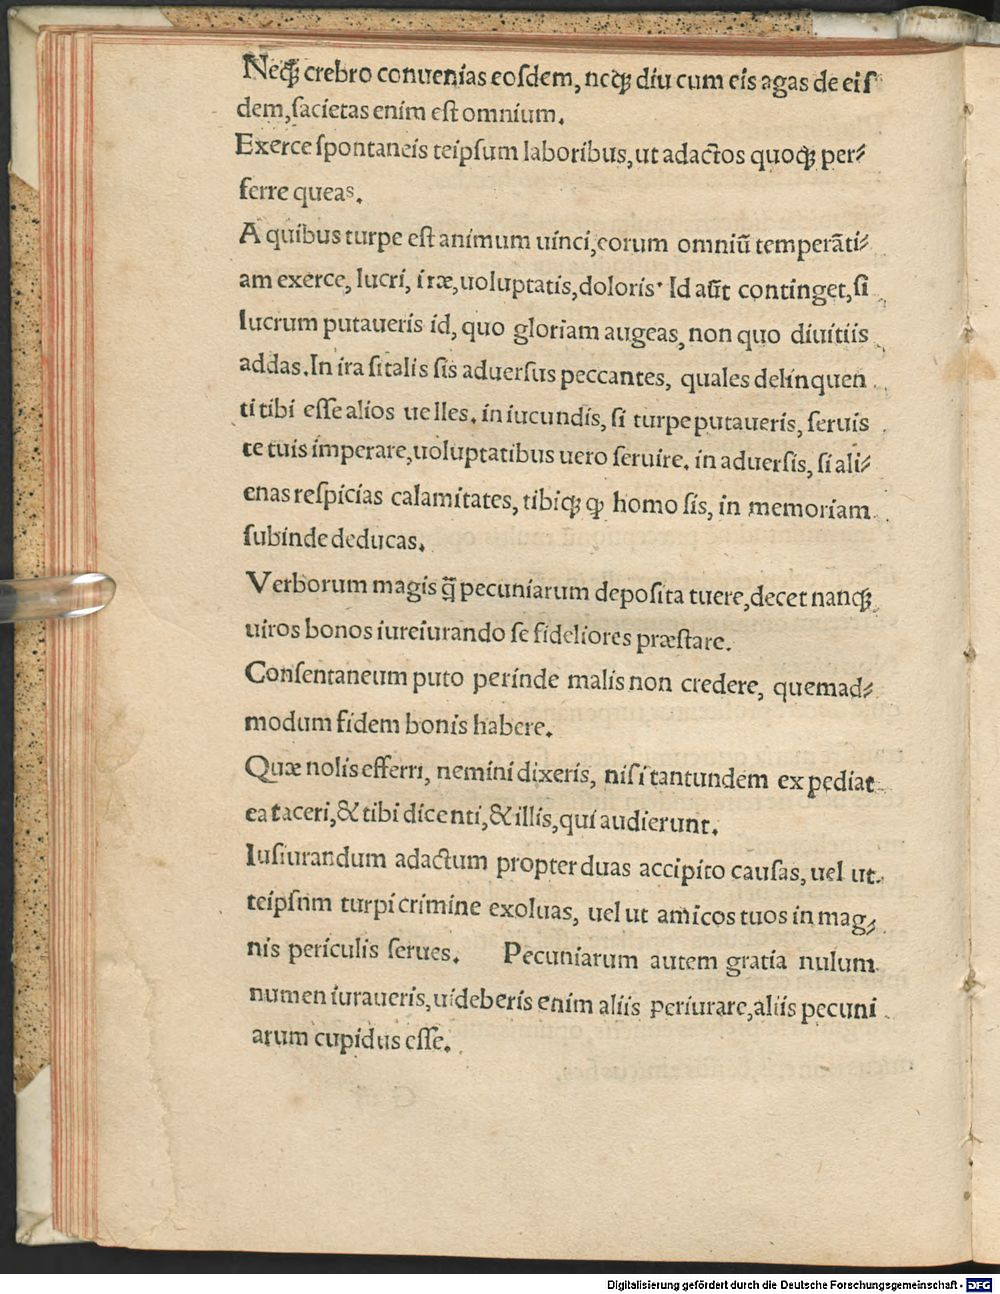 Neqꝫ crebro conuenias eosdem, neqꝫ diu cum eis agas de eiſ
dem, ſacietas enim eſt omnium.
Exerce ſpontaneis teipſum laboribus, ut adactos quoqꝫ per⸗
ferre queas.
A quibus turpe eſt animum uinci, eorum omniū temperāti⸗
am exerce, lucri, iræ, uoluptatis, doloris. Id aūt continget, ſi
lucrum putaueris id, quo gloriam augeas, non quo diuitiis
addas. In ira ſi talis ſis aduerſus peccantes, quales delinquen
ti tibi eſſe alios uelles. in iucundis, ſi turpe putaueris, ſeruis
te tuis imperare, uoluptatibus uero ſeruire. in aduerſis, ſi ali⸗
enas reſpicias calamitates, tibiqꝫ ꝙ homo ſis, in memoriam
ſubinde deducas.
Verborum magis q̄ꝫ pecuniarum depoſita tuere, decet nanqꝫ
uiros bonos iureiurando ſe fideliores præſtare.
Conſentaneum puto perinde malis non credere, quemad⸗
modum fidem bonis habere.
Quæ nolis efferri, nemini dixeris, niſi tantundem expediat
ea taceri, & tibi dicenti, & illis, qui audierunt.
Iuſiurandum adactum propter duas accipito cauſas, uel ut
teipſum turpi crimine exoluas, uel ut amicos tuos in mag⸗
nis periculis ſerues. Pecuniarum autem gratia nulum
numen iuraueris, uideberis enim aliis periurare, aliis pecuni
arum cupidus eſſe.
Digitalisierung gefördert durch die Deutsche Forschungsgemeinschaft - DFG